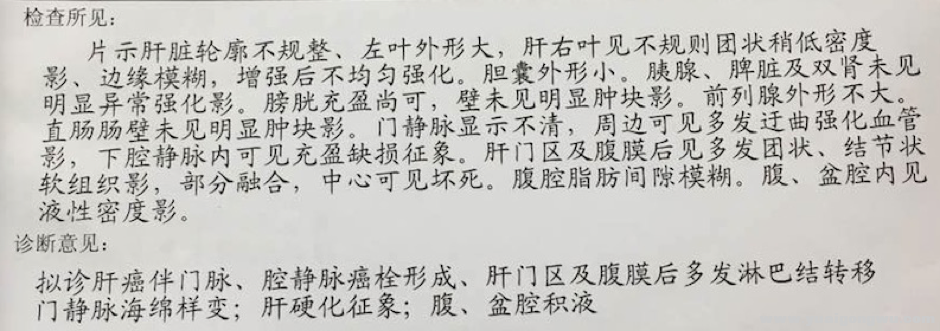 检查所见：
片示肝脏轮廓不规整、左叶外形大，肝右叶见不规则团状稍低密度
影、边缘模糊，增强后不均匀强化。胆囊外形小。胰腺、脾脏及双肾未见
明显异常强化影。膀胱充盈尚可，壁未见明显肿块影。前列腺外形不大。
直肠肠壁未见明显肿块影。门静脉显示不清，周边可见多发迂曲强化血管
影，下腔静脉内可见充盈缺损征象。肝门区及腹膜后见多发团状、结节状
软组织影，部分融合，中心可见坏死。腹腔脂肪间隙模糊。腹、盆腔内见
液性密度影。
诊断意见：
拟诊肝癌伴门脉、腔静脉癌栓形成、肝门区及腹膜后多发淋巴结转移
门静脉海绵样变；肝硬化征象；腹、盆腔积液